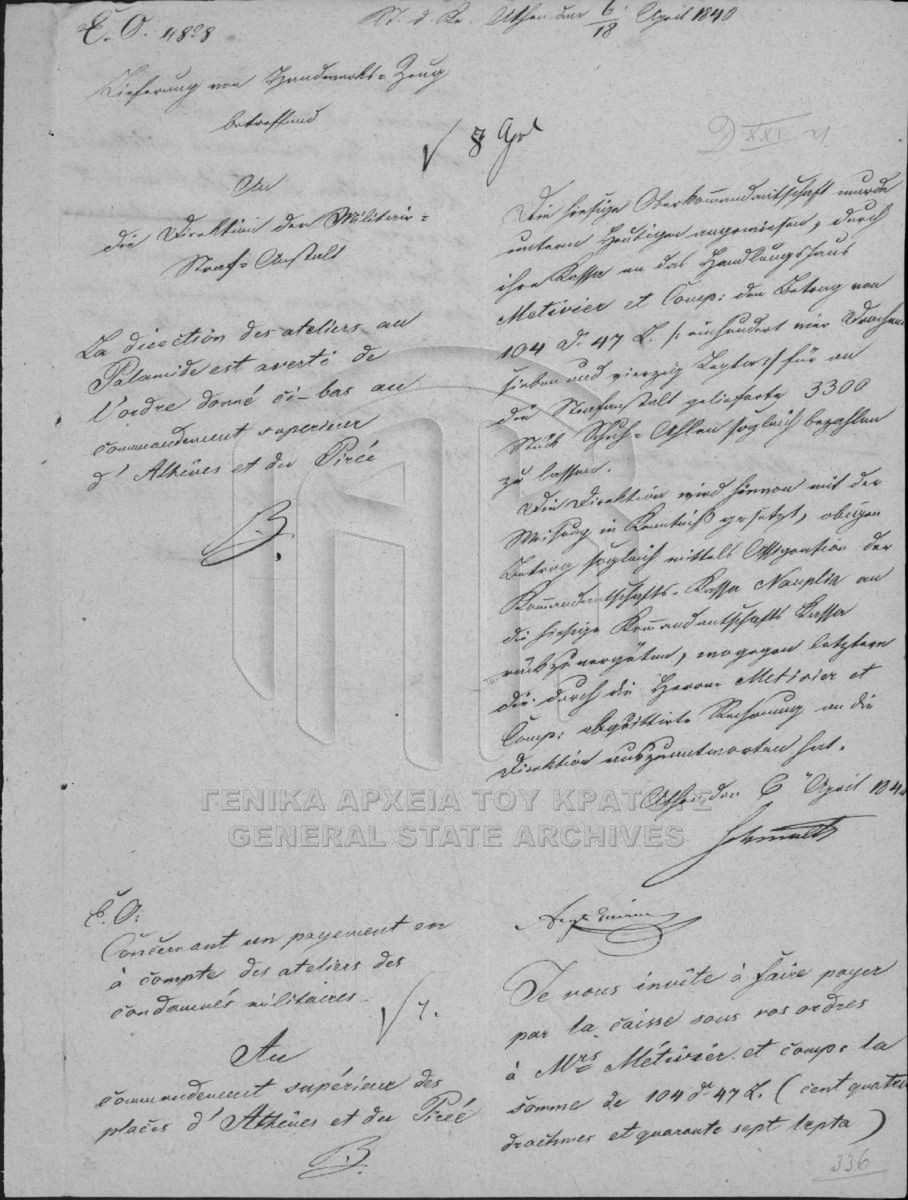 E. O. 4828
Athen den 6/18 April 1840
Lieferung von Handwerks-Zeug
betreffend
8 Apl
D XXI 21
An
die Direktion der Militair-
Straf-Anstalt
La direction des ateliers au
Palamide est averti de
l'ordre donné ci-bas au
commandement superieur
d'Athênes et du Pirée
B.
Die hiesige Oberkommandantschaft wurde
unterm Heutigen angewiesen, durch
ihre Kassa an das Handlungshaus
Metivier et Comp: den Betrag von
104 D. 47 L. /: einhundert vier Drachmen
sieben und vierzig Lepta :/ für an
die Strafanstalt gelieferte 3300
Stük Schuh-Ahlen sogleich bezahlen
zu lassen.
Die Direktion wird hievon mit der
Weisung in Kenntniß gesetzt, obigen
Betrag sogleich mittels Assignation der
Kommandantschafts-Kassa Nauplia an
die hiesige Kommandantschafts Kassa
rükzuvergüten, wogegen letztere
die durch die Herren Metivier et
Comp: abquittirte Rechnung an die
Direktion auszuantworten hat.
Athen den 6 April 1840
Schmaltz
ΓΕΝΙΚΑ ΑΡΧΕΙΑ ΤΟΥ ΚΡΑΤΟΥΣ
GENERAL STATE ARCHIVES
E. O.
Concernant un payement en
à compte des ateliers des
condamnés militaires.
7.
Au
commandement supérieur des
places d'Athênes et du Pirée
B.
Je vous invite à faire payer
par la caisse sous vos ordres
à Mrs Métivier et comp: la
somme de 104 dr 47 L. (cent quatre
drachmes et quarante sept lepta)
336